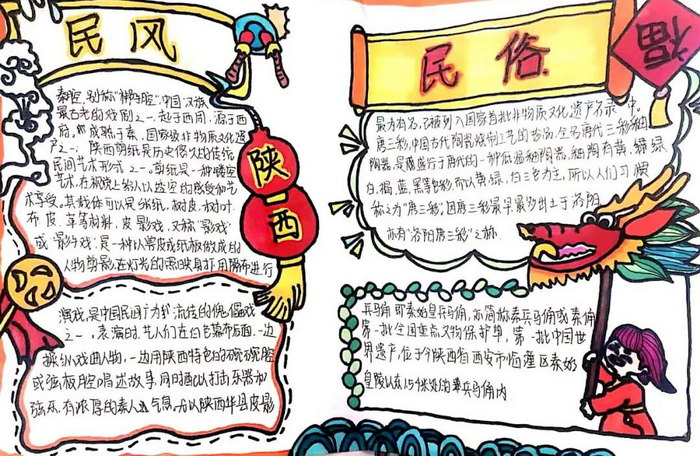 民风
秦腔,别称"梆子腔",中国汉族
最古老的戏剧之一,起于西周,源于西
府,成熟于秦。国家级非物质文化遗
产之一,陕西剪纸是历史悠久的传统
民间艺术形式之一。剪纸是一种镂空
艺术,在视觉上给人以透空的感觉和艺
术享受。其载体可以是纸张、树皮、树叶
布、皮、革等材料,皮影戏,又称"影戏"
或"影子戏",是一种以兽皮或纸板做成的
人物剪影在灯光的照映身打用隔布进行
演戏,是中国民间广为流传的傀儡戏
之一,表演时,艺人们在白色幕布后面,一边
操纵戏曲人物,一边用陕西特色的碗碗腔
或弦板腔唱述故事,同时配以打击乐器和
弦乐,有浓厚的秦人气息,尤以陕西华县皮影
陕西
民俗
福
最为有名,已被列入国家首批非物质文化遗产名录中。
唐三彩,中国古代陶瓷烧制工艺的珍品,全名唐代三彩釉
陶器,是盛行于唐代的一种低温釉陶器,釉陶有黄、绿
白、褐、蓝、黑等色彩,而以黄、绿、白三色为主,所以人们习惯
称之为"唐三彩"。因唐三彩最早、最多出土于洛阳
亦有"洛阳唐三彩"之称
兵马俑,即秦始皇兵马俑,亦简称秦兵马俑或秦俑
第一批全国重点文物保护单,第一批中国世
界遗产,位于今陕西省西安市临潼区秦始
皇陵以东1.5千米处的秦兵马俑内